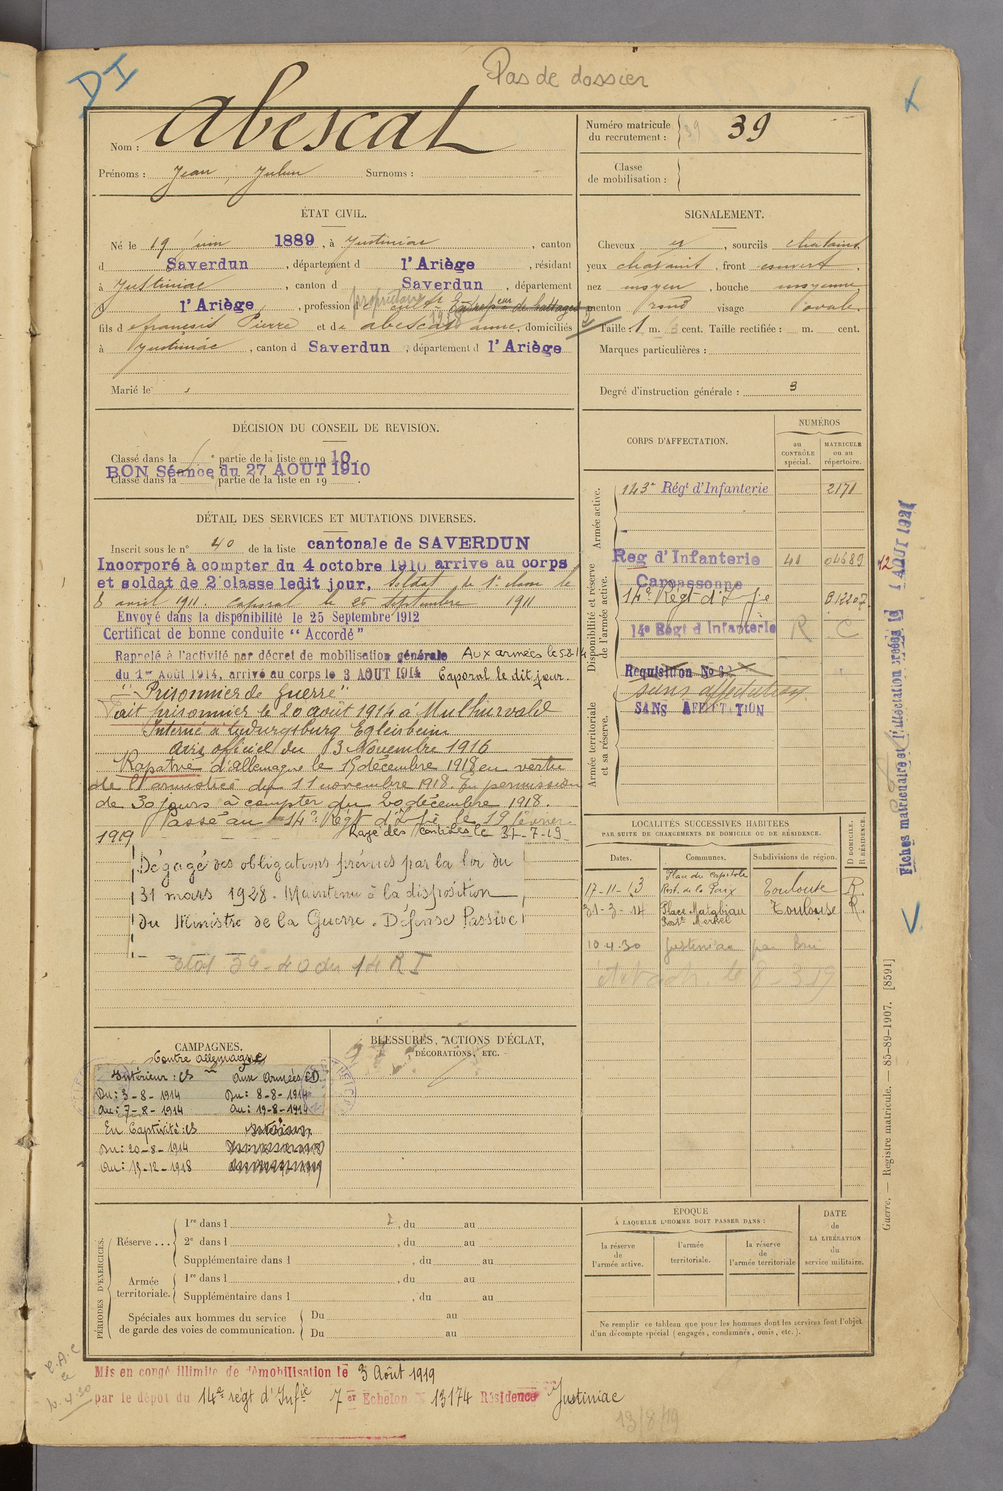 Pas de dossier
DI
Nom : Abescat
Prénoms : Jean, Julien Surnoms :
Numéro matricule du recrutement : 39
Classe de mobilisation :
ÉTAT CIVIL.
Né le 19 juin 1889, à Justiniac, canton
d Saverdun, département d l'Ariège, résidant
à Justiniac, canton d Saverdun, département
d l'Ariège, profession d propriétaire
fils d François Pierre et de Abescat Anne, domiciliés
à Justiniac, canton d Saverdun, département d l'Ariège
Marié le
SIGNALEMENT.
Cheveux, sourcils chatains
yeux, front couvert,
nez moyen, bouche moyenne
menton rond visage ovale
Taille : 1 m. cent. Taille rectifiée : m. cent.
Marques particulières :
Degré d'instruction générale : 3
DÉCISION DU CONSEIL DE REVISION.
Classé dans la partie de la liste en 1910
BON Séance du 27 AOUT 1910
Classé dans la partie de la liste en 19
DÉTAIL DES SERVICES ET MUTATIONS DIVERSES.
Inscrit sous le n° 40 de la liste cantonale de SAVERDUN
Incorporé à compter du 4 octobre 1910 arrivé au corps
et soldat de 2e classe ledit jour, soldat de 1e classe le
8 avril 1911. Caporal le 25 septembre 1911
Envoyé dans la disponibilité le 25 Septembre 1912
Certificat de bonne conduite "Accordé"
Rappelé à l'activité par décret de mobilisation générale Aux armées le 5.8.14
du 1er Août 1914, arrivé au corps le 3 AOUT 1914 Caporal le dit jour.
"Prisonnier de guerre"
Fait prisonnier le 20 août 1914 à Mulhurvald
Interné à Ludwigsburg Egleisheim
avis officiel du 3 Novembre 1916
Rapatrié d'allemagne le 15 décembre 1918 en vertu
de l'armistice du 11 novembre 1918. En permission
de 30 jours à compter du 20 décembre 1918.
Passé au 14e Régt d'Ifie le 19 février
1919 Rayé des Contrôles le 31-7-19
Dégagé des obligations prévues par la loi du
31 mars 1928. Maintenu à la disposition
du Ministre de la Guerre. Défense Passive
état 39-40 du 14 R I
CORPS D'AFFECTATION.
NUMÉROS
au CONTRÔLE spécial.
MATRICULE ou au répertoire.
Armée active.
143e Régt d'Infanterie 2171
Disponibilité et réserve de l'armée active.
Reg d'Infanterie
Carcassonne
14e Régt d'Ifie
14e Régt d'Infanterie R C
Armée territoriale et sa réserve.
Requisition No 62
sans affectation
SANS AFFECTATION
LOCALITÉS SUCCESSIVES HABITÉES
PAR SUITE DE CHANGEMENTS DE DOMICILE OU DE RÉSIDENCE.
Dates. Communes. Subdivisions de région. D DOMICILE. R RÉSIDENCE.
17-11-13 Place du Capitole Rest. de la Paix Toulouse R.
31-3-14 Place Matabiau Toulouse R.
10 4.30 Justiniac par Brie
CAMPAGNES.
Contre allemagne
Intérieur : CS aux armées CD
Du : 3-8-1914 Du : 8-8-1914
Au : 7-8-1914 Au : 19-8-1914
En Captivité : CS
Du : 20-8-1914
Au : 15-12-1918
BLESSURES, ACTIONS D'ÉCLAT,
DÉCORATIONS, ETC.
PÉRIODES D'EXERCICES.
Réserve ... 1re dans l, du au
2e dans l, du au
Supplémentaire dans l, du au
Armée territoriale. 1re dans l, du au
Supplémentaire dans l, du au
Spéciales aux hommes du service de garde des voies de communication. Du au
Du au
ÉPOQUE
À LAQUELLE L'HOMME DOIT PASSER DANS :
la réserve de l'armée active.
l'armée territoriale.
la réserve de l'armée territoriale
DATE de LA LIBÉRATION du service militaire.
Ne remplir ce tableau que pour les hommes dont les services font l'objet
d'un décompte spécial (engagés, condamnés, omis, etc.).
Mis en congé illimité de démobilisation le 3 Août 1919
par le dépôt du 14e régt d'Infie 7er Echelon 13174 Résidence Justiniac
13/8/19
Guerre. — Registre matricule. — 85-89-1907. [8591]